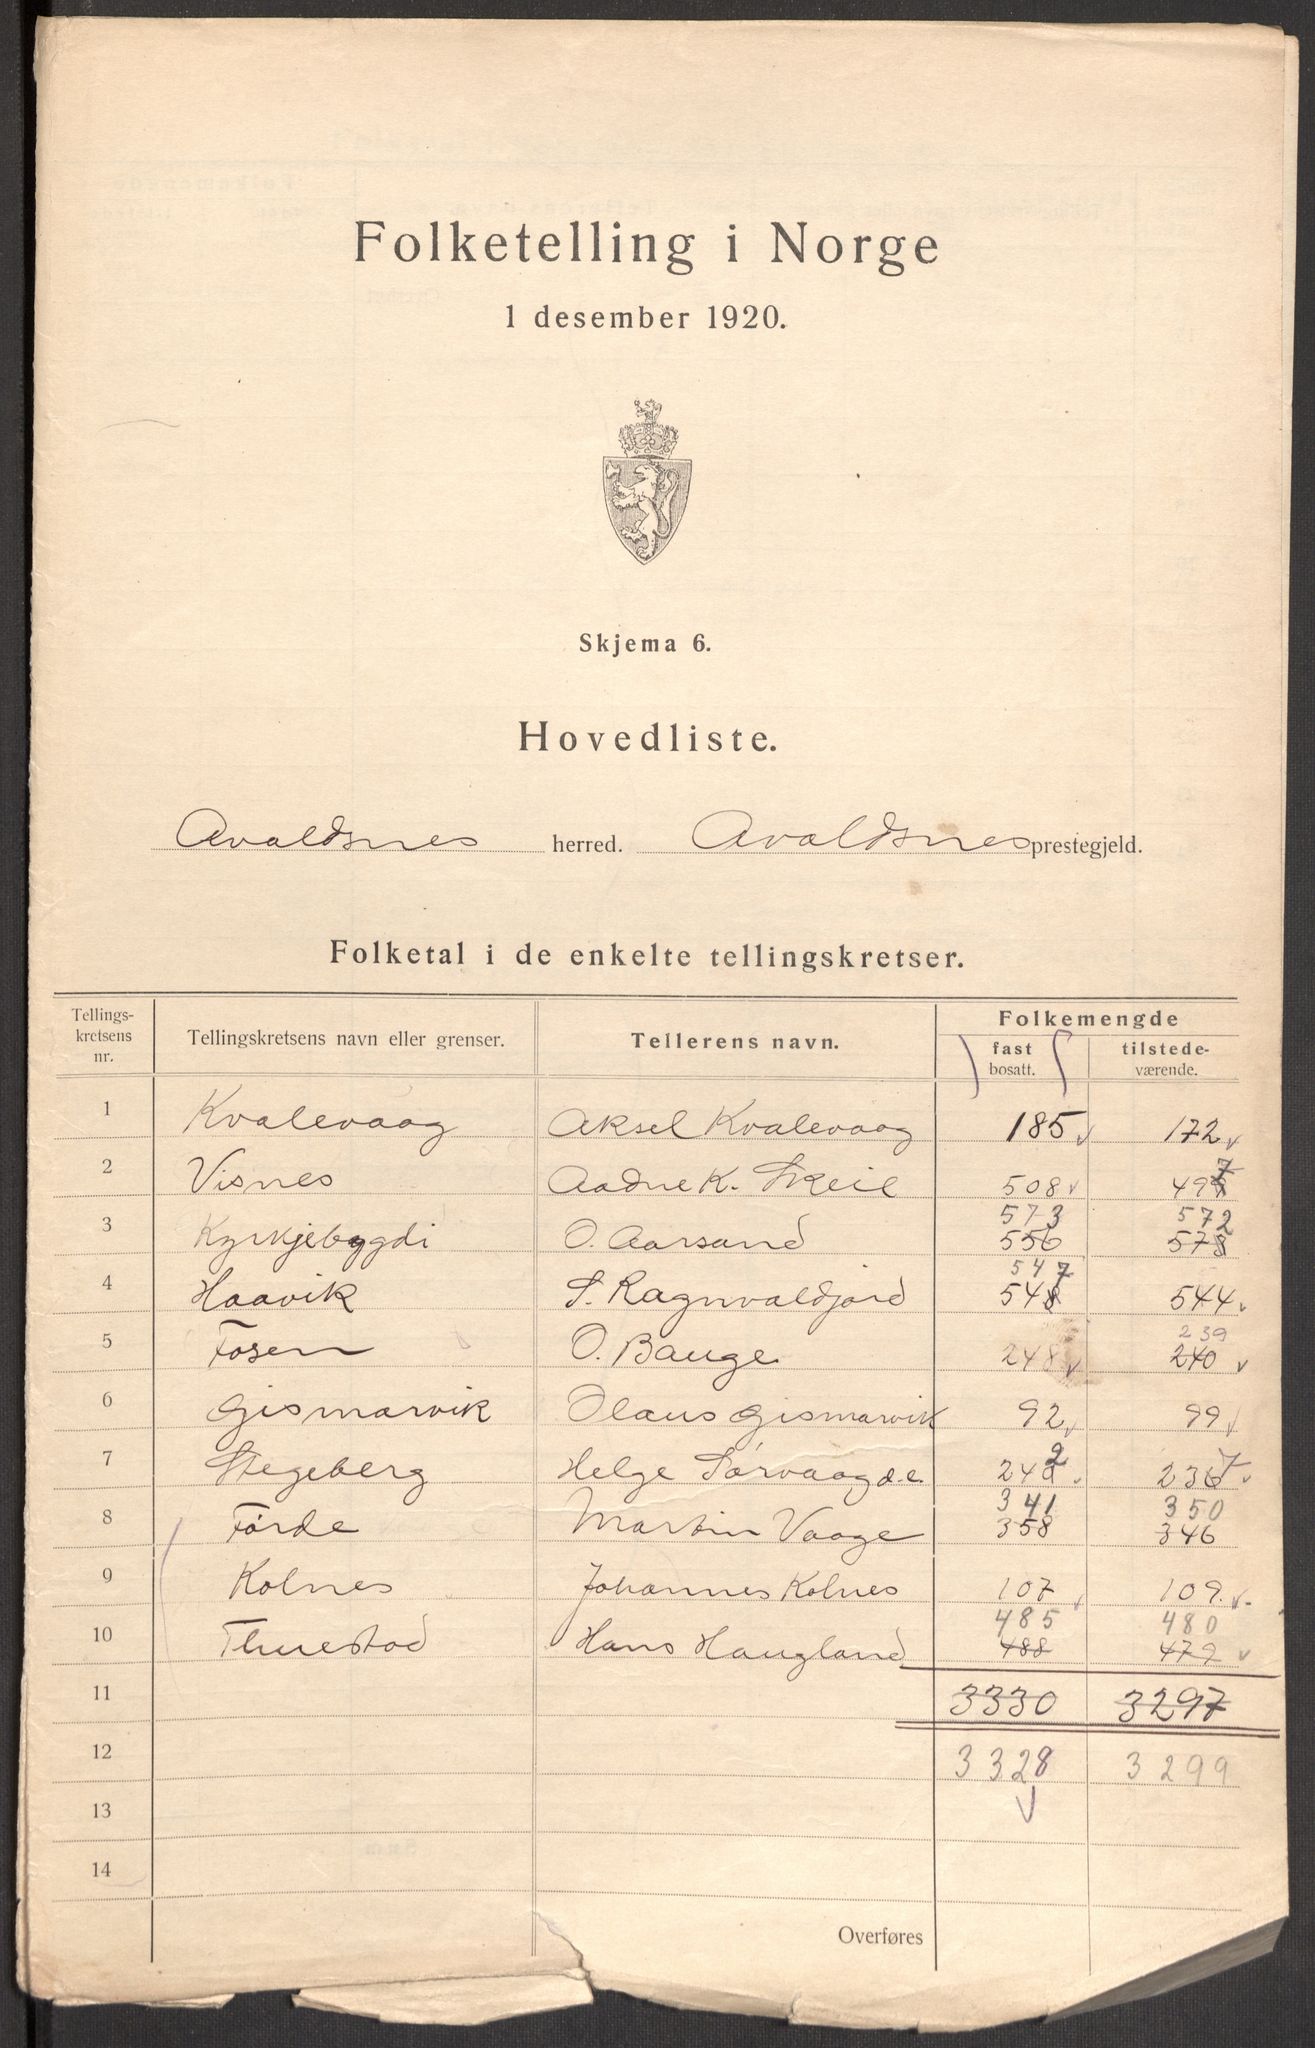 Folketelling i Norge
1 desember 1920.
Skjema 6.
Hovedliste.
Avaldsnes herred. Avaldsnes prestegjeld.
Folketal i de enkelte tellingskretser.
Tellings-kretsens nr. Tellingskretsens navn eller grenser. Tellerens navn. Folkemengde
fast bosatt. tilstede-værende.
1 Kvalevaag Aksel Kvalevaag 185 172
2 Visnes Aadne K. Skeie 508 497
573 572
3 Kyrkjebygdi O. Aarsand 556 578
547
4 Haavik S. Ragnvaldjord 548 544
239
5 Fosen O. Bauge 248 240
6 Gismarvik Olaus Gismarvik 92 99
7 Stegeberg Helge Sørvaag d.e. 242 237
341 350
8 Førde Martin Vaage 358 346
9 Kolnes Johannes Kolnes 107 109
485 480
10 Thuestad Hans Haugland 488 479
11 3330 3297
12 3328 3299
13
14
Overføres